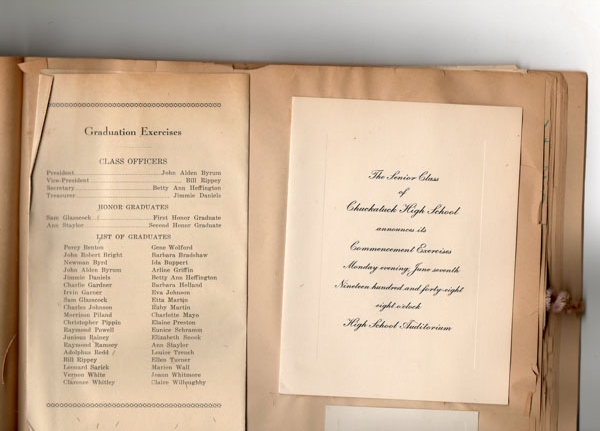 Graduation Exercises
CLASS OFFICERS
President John Alden Byrum
Vice-President Bill Rippey
Secretary Betty Ann Heffington
Treasurer Jimmie Daniels
HONOR GRADUATES
Sam Glasscock First Honor Graduate
Ann Staylor Second Honor Graduate
LIST OF GRADUATES
Percy Benton Gene Wolford
John Robert Bright Barbara Bradshaw
Newman Byrd Ida Buppert
John Alden Byrum Arline Griffin
Jimmie Daniels Betty Ann Heffington
Charlie Gardner Barbara Holland
Irvin Garner Eva Johnson
Sam Glasscock Etta Martin
Charles Johnson Ilsby Martin
Morrison Piland Charlotte Mayo
Christopher Pippin Elaine Preston
Raymond Powell Eunice Schramm
Junious Rainey Elizabeth Snock
Raymond Ramsey Ann Staylor
Adolphus Redd Louise Trench
Bill Rippey Ellen Turner
Leonard Sarick Marien Wall
Vernon White Joann Whitmore
Clarence Whitley Claire Willoughby
The Senior Class
of
Chuckatuck High School
announces its
Commencement Exercises
Monday evening, June seventh
Nineteen hundred and forty-eight
eight o'clock
High School Auditorium